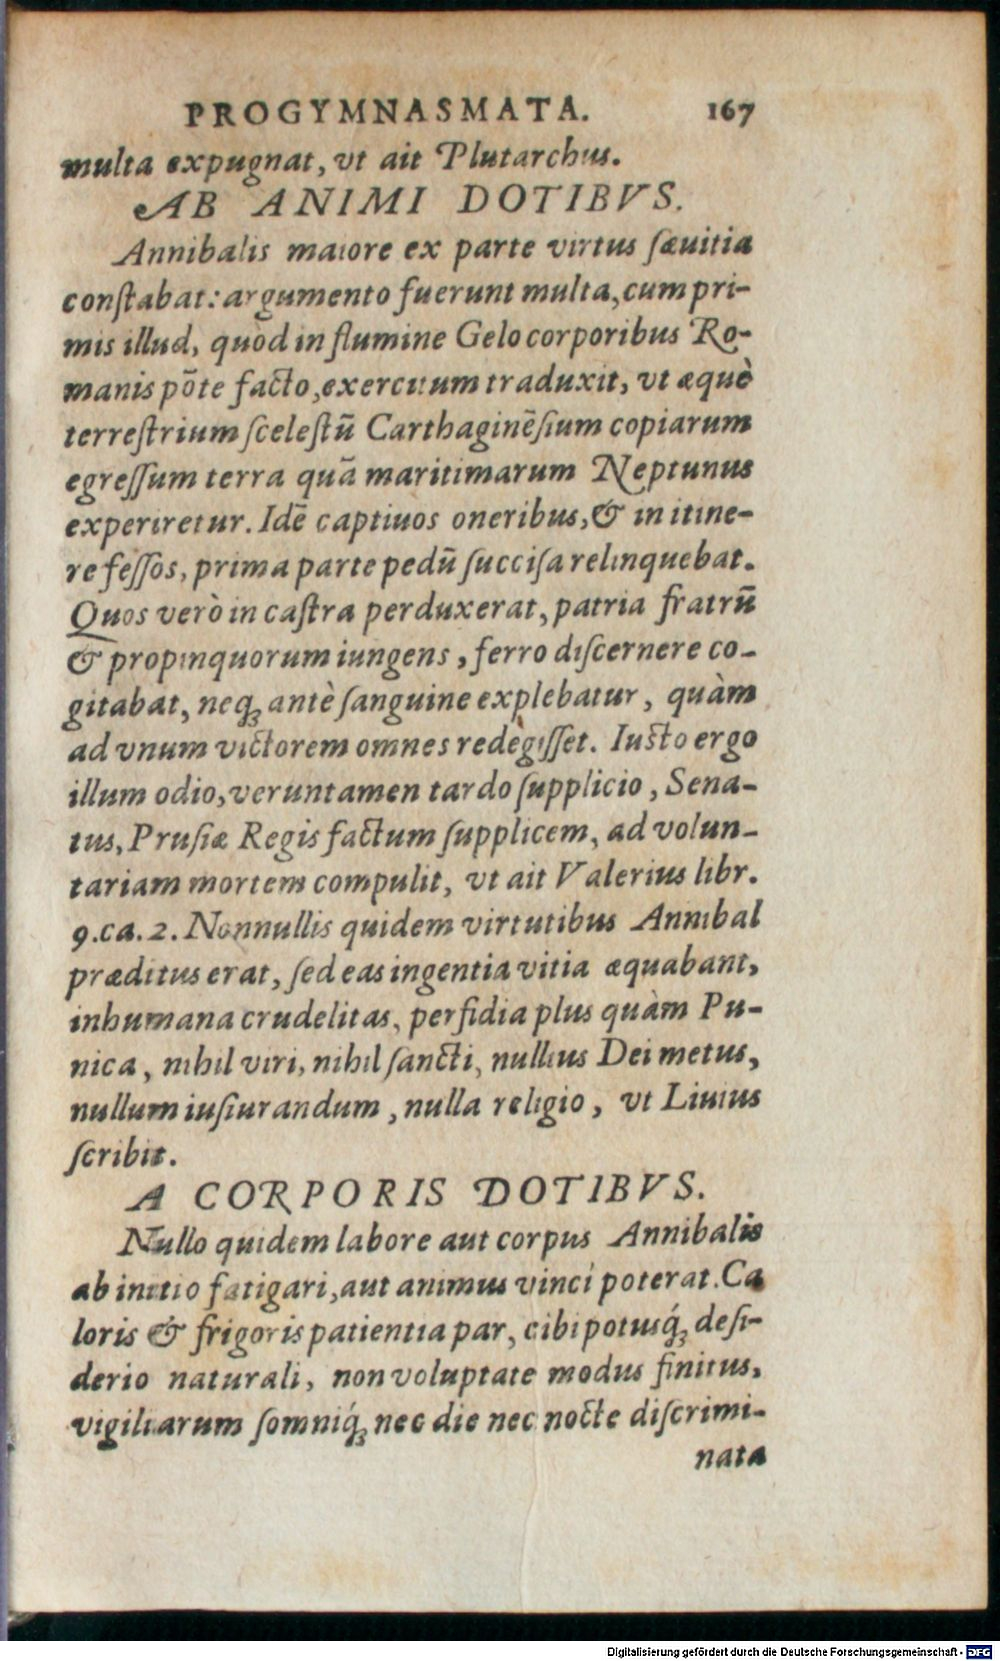 PROGYMNASMATA. 167
multa expugnat, vt ait Plutarchus.
AB ANIMI DOTIBVS.
Annibalis maiore ex parte virtus ſæuitia
conſtabat: argumento fuerunt multa, cum pri-
mis illud, quòd in flumine Gelo corporibus Ro-
manis põte facto, exercitum traduxit, vt æquè
terreſtrium ſceleſtũ Carthaginẽſium copiarum
egreſſum terra quã maritimarum Neptunus
experiretur. Idẽ captiuos oneribus, & in itine-
re feſſos, prima parte pedũ ſucciſa relinquebat.
Quos verò in caſtra perduxerat, patria fratrũ
& propinquorum iungens, ferro diſcernere co-
gitabat, neqꝫ antè ſanguine explebatur, quàm
ad vnum victorem omnes redègiſſet. Iuſto ergo
illum odio, veruntamen tardo ſupplicio, Sena-
tus, Pruſiæ Regis factum ſupplicem, ad volun-
tariam mortem compulit, vt ait Valerius libr.
9. ca. 2. Nonnullis quidem virtutibus Annibal
præditus erat, ſed eas ingentia vitia æquabant,
inhumana crudelitas, perfidia plus quàm Pu-
nica, nihil viri, nihil ſancti, nullius Dei metus,
nullum iuſiurandum, nulla religio, vt Liuius
ſcribit.
A CORPORIS DOTIBVS.
Nullo quidem labore aut corpus Annibalis
ab initio fatigari, aut animus vinci poterat. Ca
loris & frigoris patientia par, cibi potuiſq́ꝫ deſi-
derio naturali, non voluptate modus finitus,
vigiliarum ſomniq́ꝫ nec die nec nocte diſcrimi-
nata
Digitalisierung gefördert durch die Deutsche Forschungsgemeinschaft - DFG